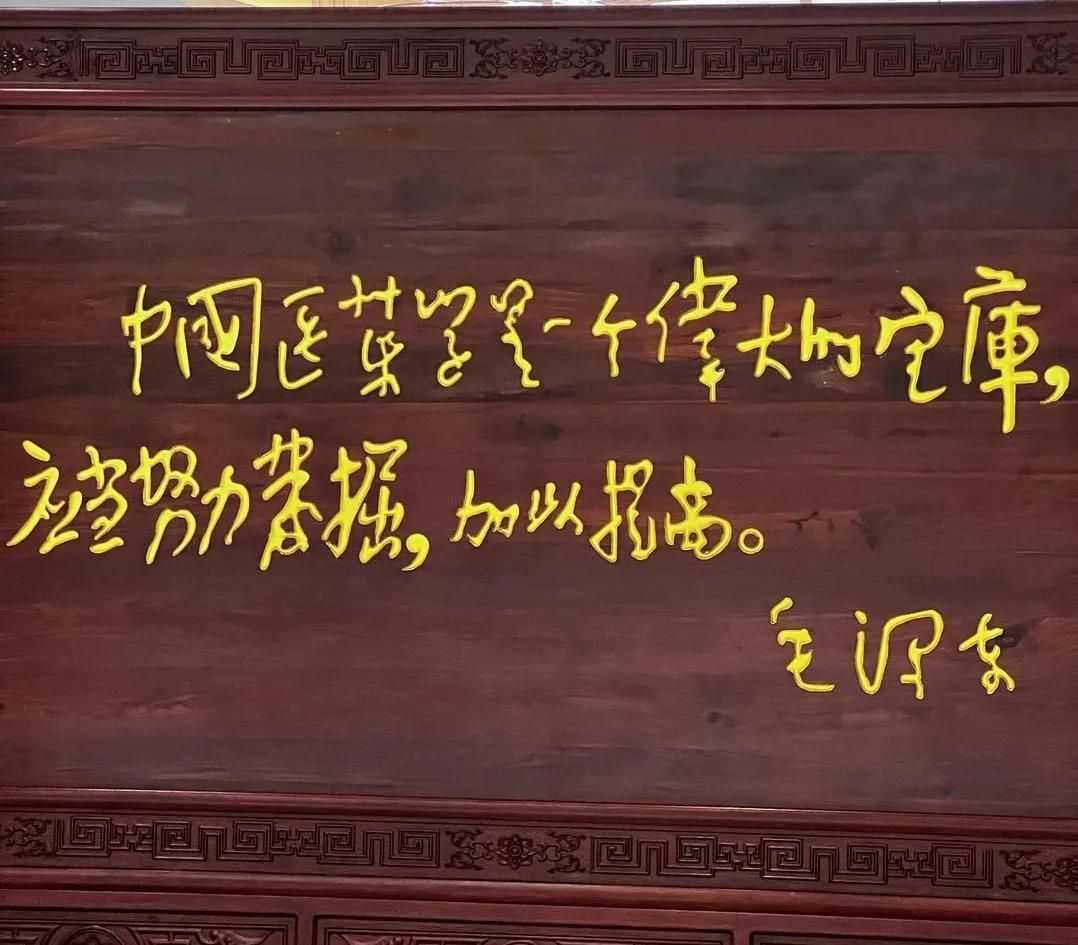 中國医药学是一个偉大的宝庫，
应当努力发掘，加以提高。
毛泽东